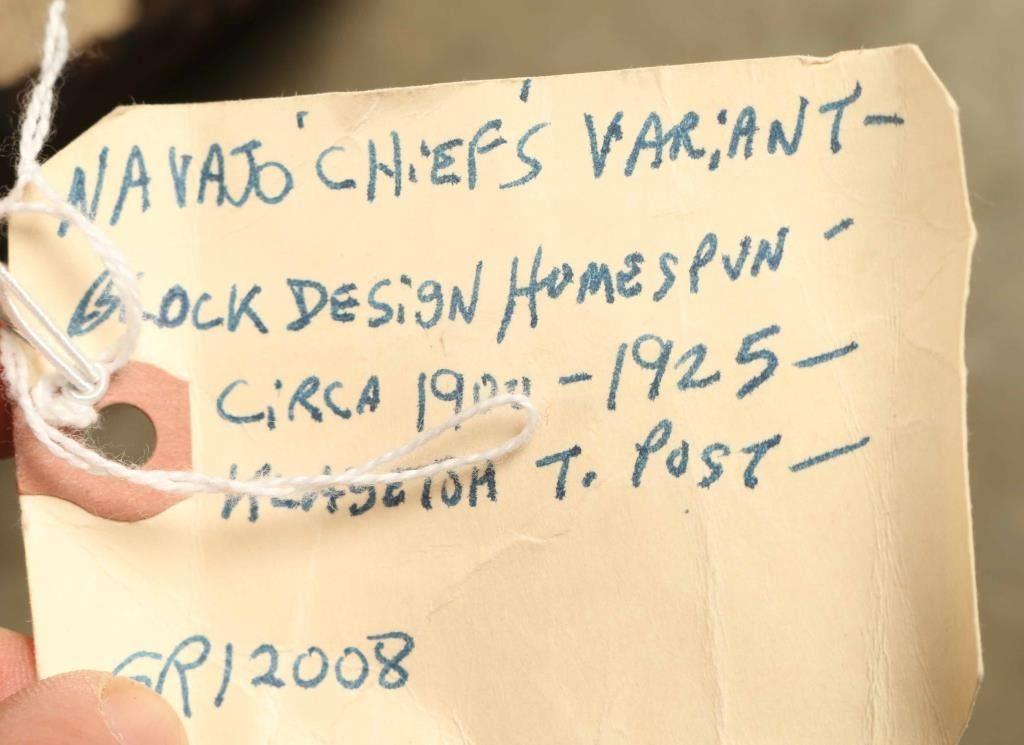 NAVAJO 'CHiEF'S VARiANT-
BLOCK DESiGN HOMESPUN -
CiRCA 1900 - 1925 -
KLAGETOH T. POST -
GR12008